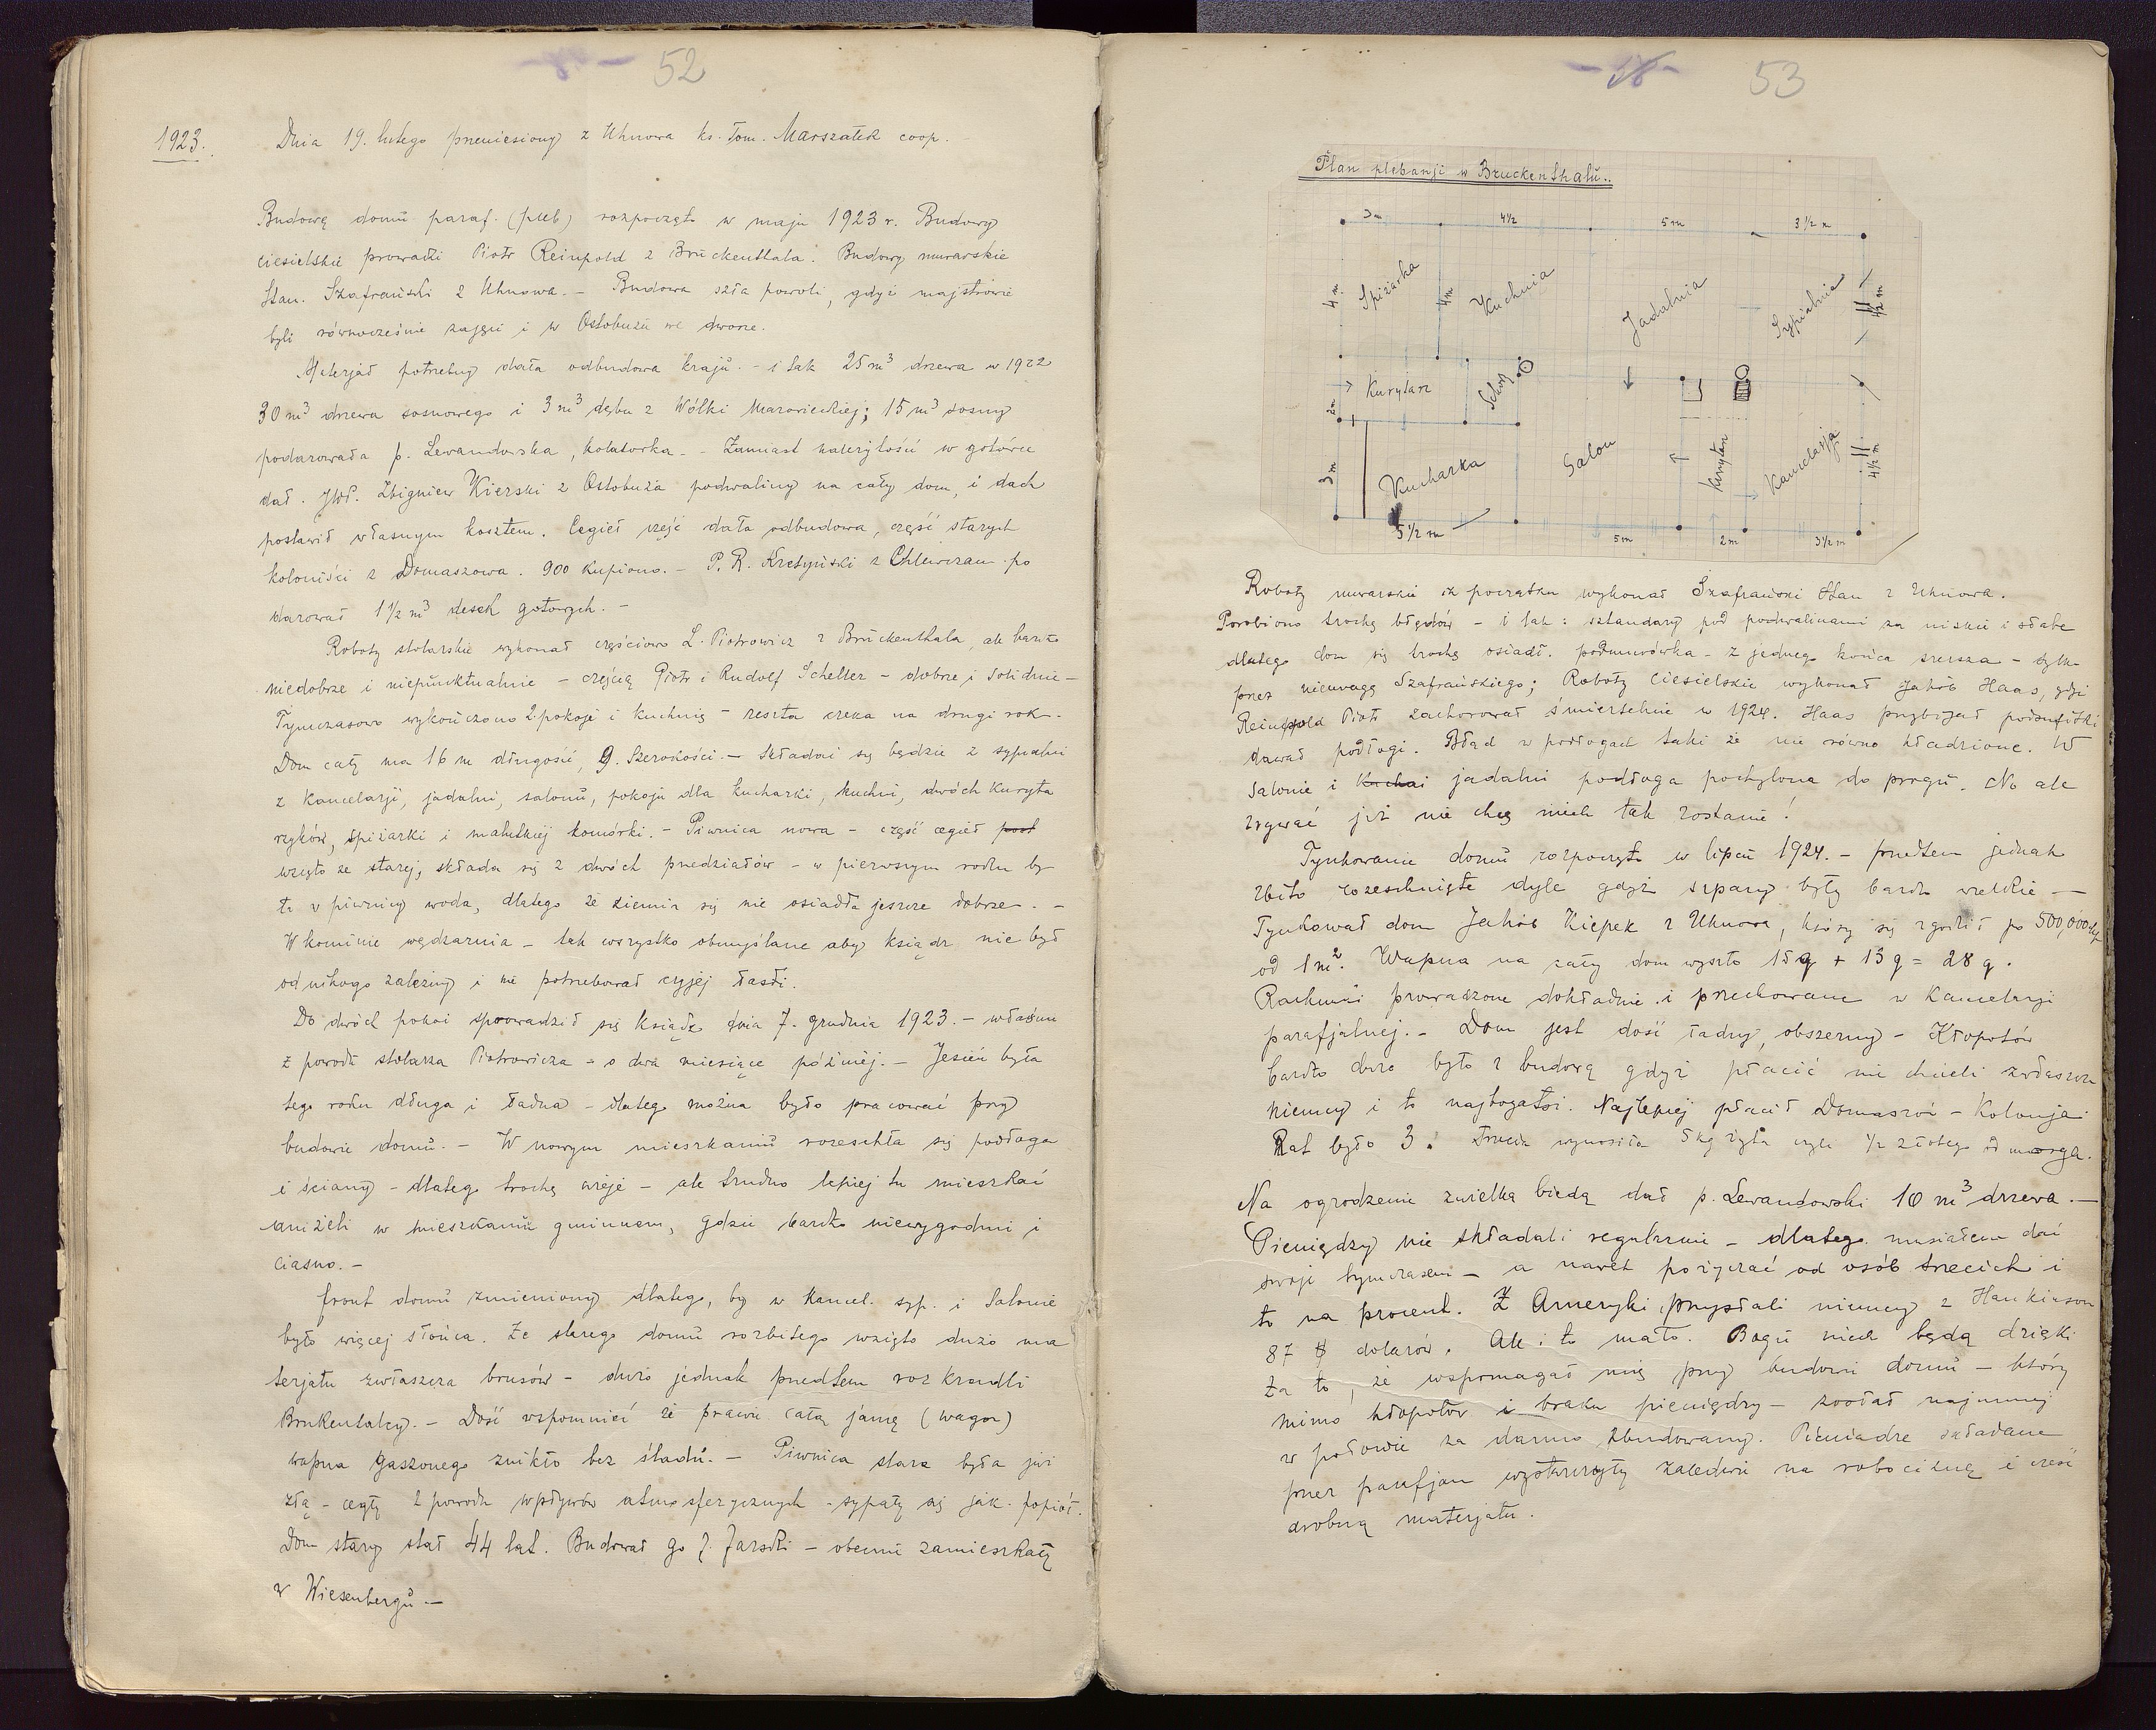 52
1923.
Dnia 19. lutego przeniesiony z Uhnowa ks. Tom. Marszałek coop.
Budowę domu paraf. (pleb) rozpoczęto w maju 1923 r. Budowy
ciesielskie prowadzi Piotr Reinpold z Bruckenthala. Budowy murarskie
Stan. Szafrański z Uhnowa. – Budowa szła powoli, gdyż majstrowie
byli równocześnie zajęci i w Ostobużu we dworze.
Materjał potrzebny dała odbudowa kraju. – i tak 25 m³ drzewa w 1922
30 m³ drzewa sosnowego i 3 m³ dębu z Wólki Mazowieckiej; 15 m³ sosny
podarowała p. Lewandowska, kolatorka. – Zamiast należytości w gotówce
dał JWP. Zbigniew Kierski z Ostobuża podwaliny na cały dom, i dach
postawił własnym kosztem. Cegieł część dała odbudowa, część starych
koloniści z Domaszowa. 900 kupiono. – P. R. Kretyński z Chlewczan po
darował 1 1/2 m³ desek gotowych. –
Roboty stolarskie wykonał częściowo L. Piotrowicz z Brückenthala, ale bardzo
niedobrze i niepunktualnie – częścią Piotr i Rudolf Scheller – dobrze i solidnie –
Tymczasowo wykończono 2. pokoje i kuchnię – reszta czeka na drugi rok –
Dom cały ma 16 m długości, 9. szerokości. – Składać się będzie z sypialni
z kancelarji, jadalni, salonu, pokoju dla kucharki, kuchni, dwóch kuryta
rzyków, spiżarki i malutkiej komórki. – Piwnica nowa – część cegieł post
wzięto ze starej, składa się z dwóch przedziałów – w pierwszym roku by
ła w piwnicy woda, dlatego że ziemia się nie osiadła jeszcze dobrze. –
W kominie wędzarnia – tak wszystko obmyślane aby ksiądz nie był
od nikogo zależny i nie potrzebował czyjej łaski.
Do dwóch pokoi sprowadził się ksiądz dnia 7. grudnia 1923. – własnie
z powodu stolarza Piotrowicza – o dwa miesiące później. – Jesień była
tego roku długa i ładna – dlatego można było pracować przy
budowie domu. – W nowym mieszkaniu rozeschła się podłoga
i ściany – dlatego trochę wieje – ale trudno lepiej tu mieszkać
aniżeli w mieszkaniu gminnem, gdzie bardzo niewygodnie i
ciasno. –
front domu zmieniony dlatego, by w kancel. syp. i salonie
było więcej słońca. Ze starego domu rozbitego wzięto dużo ma
terjału zwłaszcza brusów – dużo jednak przedtem rozkradli
Brukentalcy. – Dość wspomnieć że prawie całą jamę (wagon)
wapna gaszonego znikło bez śladu. – Piwnica stara była już
złą – cegły z powodu wpływów atmosferycznych – sypały się jak popiół.
Dom stary stał 44 lat. Budował go J. Jarski – obecnie zamieszkały
w Wiesenbergu. –
53
Plan plebanji w Bruckenthalu..
3 m 4 1/2 5 m 3 1/2 m
4 m Spiżarka 4 m Kuchnia Jadalnia Sypialnia 4 1/2 m
Kurytarz Schody
2 m
3 m Kucharka Salon kurytarz Kancelarja 4 1/2 m
5 1/2 m 5 m 2 m 3 1/2 m
Roboty murarskie z początku wykonał Szafrański Stan z Uhnowa.
Porobiono trochę błędów – i tak: sztandary pod podwalinami za niskie i słabe
dlatego dom się trochę osiadł. podmurówka – z jednego końca szersza – tylko
przez nieuwagę Szafrańskiego; Roboty ciesielskie wykonał Jakób Haas, gdyż
Reinpold Piotr zachorował śmiertelnie w 1924. Haas przybijał podsufitki
dawał podłogi. Błąd w podłogach taki że nie równo kładzione. W
salonie i kuchni jadalni podłoga pochylona do progu. No ale
zrywać już nie chcę niech tak zostanie!
Tynkowanie domu rozpoczęto w lipcu 1924. – przedtem jednak
zbito rozeschnięte dyle gdyż szpary były bardzo wielkie –
Tynkował dom Jakób Kiepek z Uhnowa, który się zgodził po 500,000 Mp
od 1 m². Wapna na cały dom wyszło 15 q + 13 q = 28 q.
Rachunki prowadzone dokładnie i przechowane w Kancelarji
parafjalnej. – Dom jest dość ładny, obszerny – Kłopotów
bardzo dużo było z budową gdyż płacić nie chcieli zwłaszcza
niemcy i to najbogatsi. Najlepiej płacił Domaszów – Kolonja
Rat było 3. Trzecia wynosiła 5 kg żyta czyli 1/2 złotego od morga.
Na ogrodzenie z wielką biedą dał p. Lewandowski 10 m³ drzewa. –
Pieniędzy nie składali regularnie – dlatego musiałem dać
swoje tymczasem – a nawet pożyczać od osób trzecich i
to na procent. Z Ameryki przysłali niemcy z Hankinson
87 $ dolarów. Ale i to mało. Bogu niech będą dzięki
za to, że wspomagał mię przy budowie domu – który
mimo kłopotów i braku pieniędzy – został najmniej
w połowie za darmo zbudowany. Pieniądze składane
przez parafjan wystarczyły zaledwie na robociznę i część
drobną materjału.